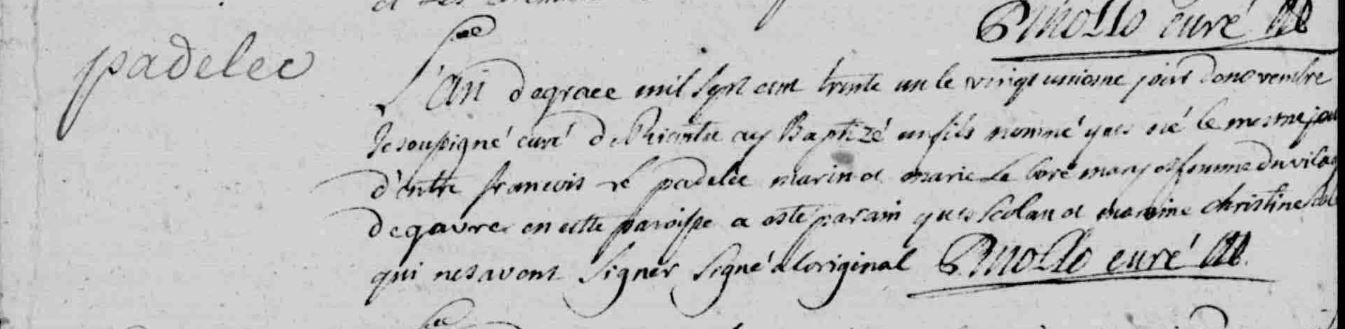 et
PMollo curé
padelec
L'an degrace mil sept cent trente un le vingt unieme jour denovembre
Je soussigné curé de Riantec ay Baptizé un fils nommé yves né le mesme jour
d'entre francois Le padelec marin et marie Le bore mary et femme du vilage
degavre en cette paroisse a esté parain yves scolan et maraine christine
qui nesavent signer signé aloriginal PMollo curé